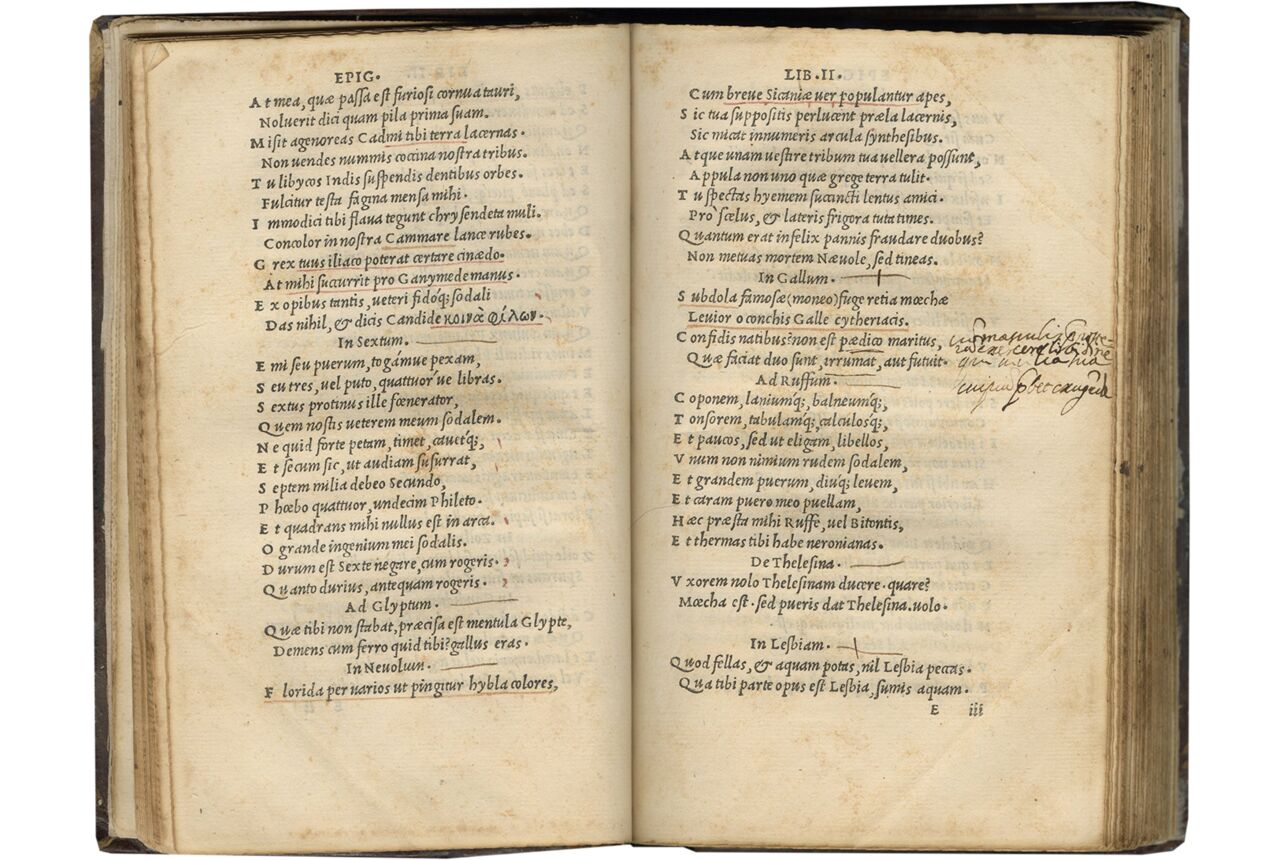 EPIG.
A t mea, quæ passa est furiosi cornua tauri,
Noluerit dici quam pila prima suam.
M isit agenoreas Cadmi tibi terra lacernas.
Non uendes nummis coccina nostra tribus.
T u libycos Indis suspendis dentibus orbes.
Fulcitur testa fagina mensa mihi.
I mmodici tibi flaua tegunt chrysendeta muli.
Concolor in nostra Cammare lance rubes.
G rex tuus iliaco poterat certare cinædo.
At mihi succurrit pro Ganymede manus.
E x opibus tantis, ueteri fidoq; sodali
Das nihil, & dicis Candide κοινὰ φίλων.
In Sextum.
E mi seu puerum, togámue pexam,
S eu tres, uel puto, quattuor ue libras.
S extus protinus ille fœnerator,
Q uem nostis ueterem meum sodalem.
N e quid forte petam, timet, cauetq́;
E t secum sic, ut audiam susurrat,
S eptem milia debeo Secundo,
P hœbo quattuor, undecim Phileto.
E t quadrans mihi nullus est in arca.
O grande ingenium mei sodalis.
D urum est Sexte negare, cum rogeris.
Q uanto durius, antequam rogeris.
Ad Glyptum.
Quæ tibi non stabat, præcisa est mentula Glypte,
Demens cum ferro quid tibi? gallus eras.
In Neuolum.
F lorida per uarios ut pingitur hybla colores,
LIB.II.
Cum breue Sicaniæ uer populantur apes,
S ic tua suppositis perlucent præla lacernis,
Sic micat innumeris arcula synthesibus.
A tque unam uestire tribum tua uellera possunt,
Appula non uno quæ grege terra tulit.
T u spectas hyemem succincti lentus amici.
Pro scelus, & lateris frigora tuta times.
Q uantum erat infelix pannis fraudare duobus?
Non metuas mortem Næuole, sed tineas.
In Gallum.
S ubdola famosæ (moneo) fuge retia mœchæ
Leuior o conchis Galle cytheriacis.
C onfidis natibus? non est pædico maritus,
Quæ faciat duo sunt, irrumat, aut futuit.
Ad Ruffum.
C oponem, laniumq́;, balneumq́;,
T onsorem, tabulamq́;, calculosq́;,
E t paucos, sed ut eligam, libellos,
V num non nimium rudem sodalem,
E t grandem puerum, diuq; leuem,
E t caram puero meo puellam,
H æc præsta mihi Ruffe, uel Bitontis,
E t thermas tibi habe neronianas.
De Thelesina.
V xorem nolo Thelesinam ducere. quare?
Mœcha est. sed pueris dat Thelesina. uolo.
In Lesbiam.
Quod fellas, & aquam potas, nil Lesbia peccas.
Qua tibi parte opus est Lesbia, sumis aquam.
E iii